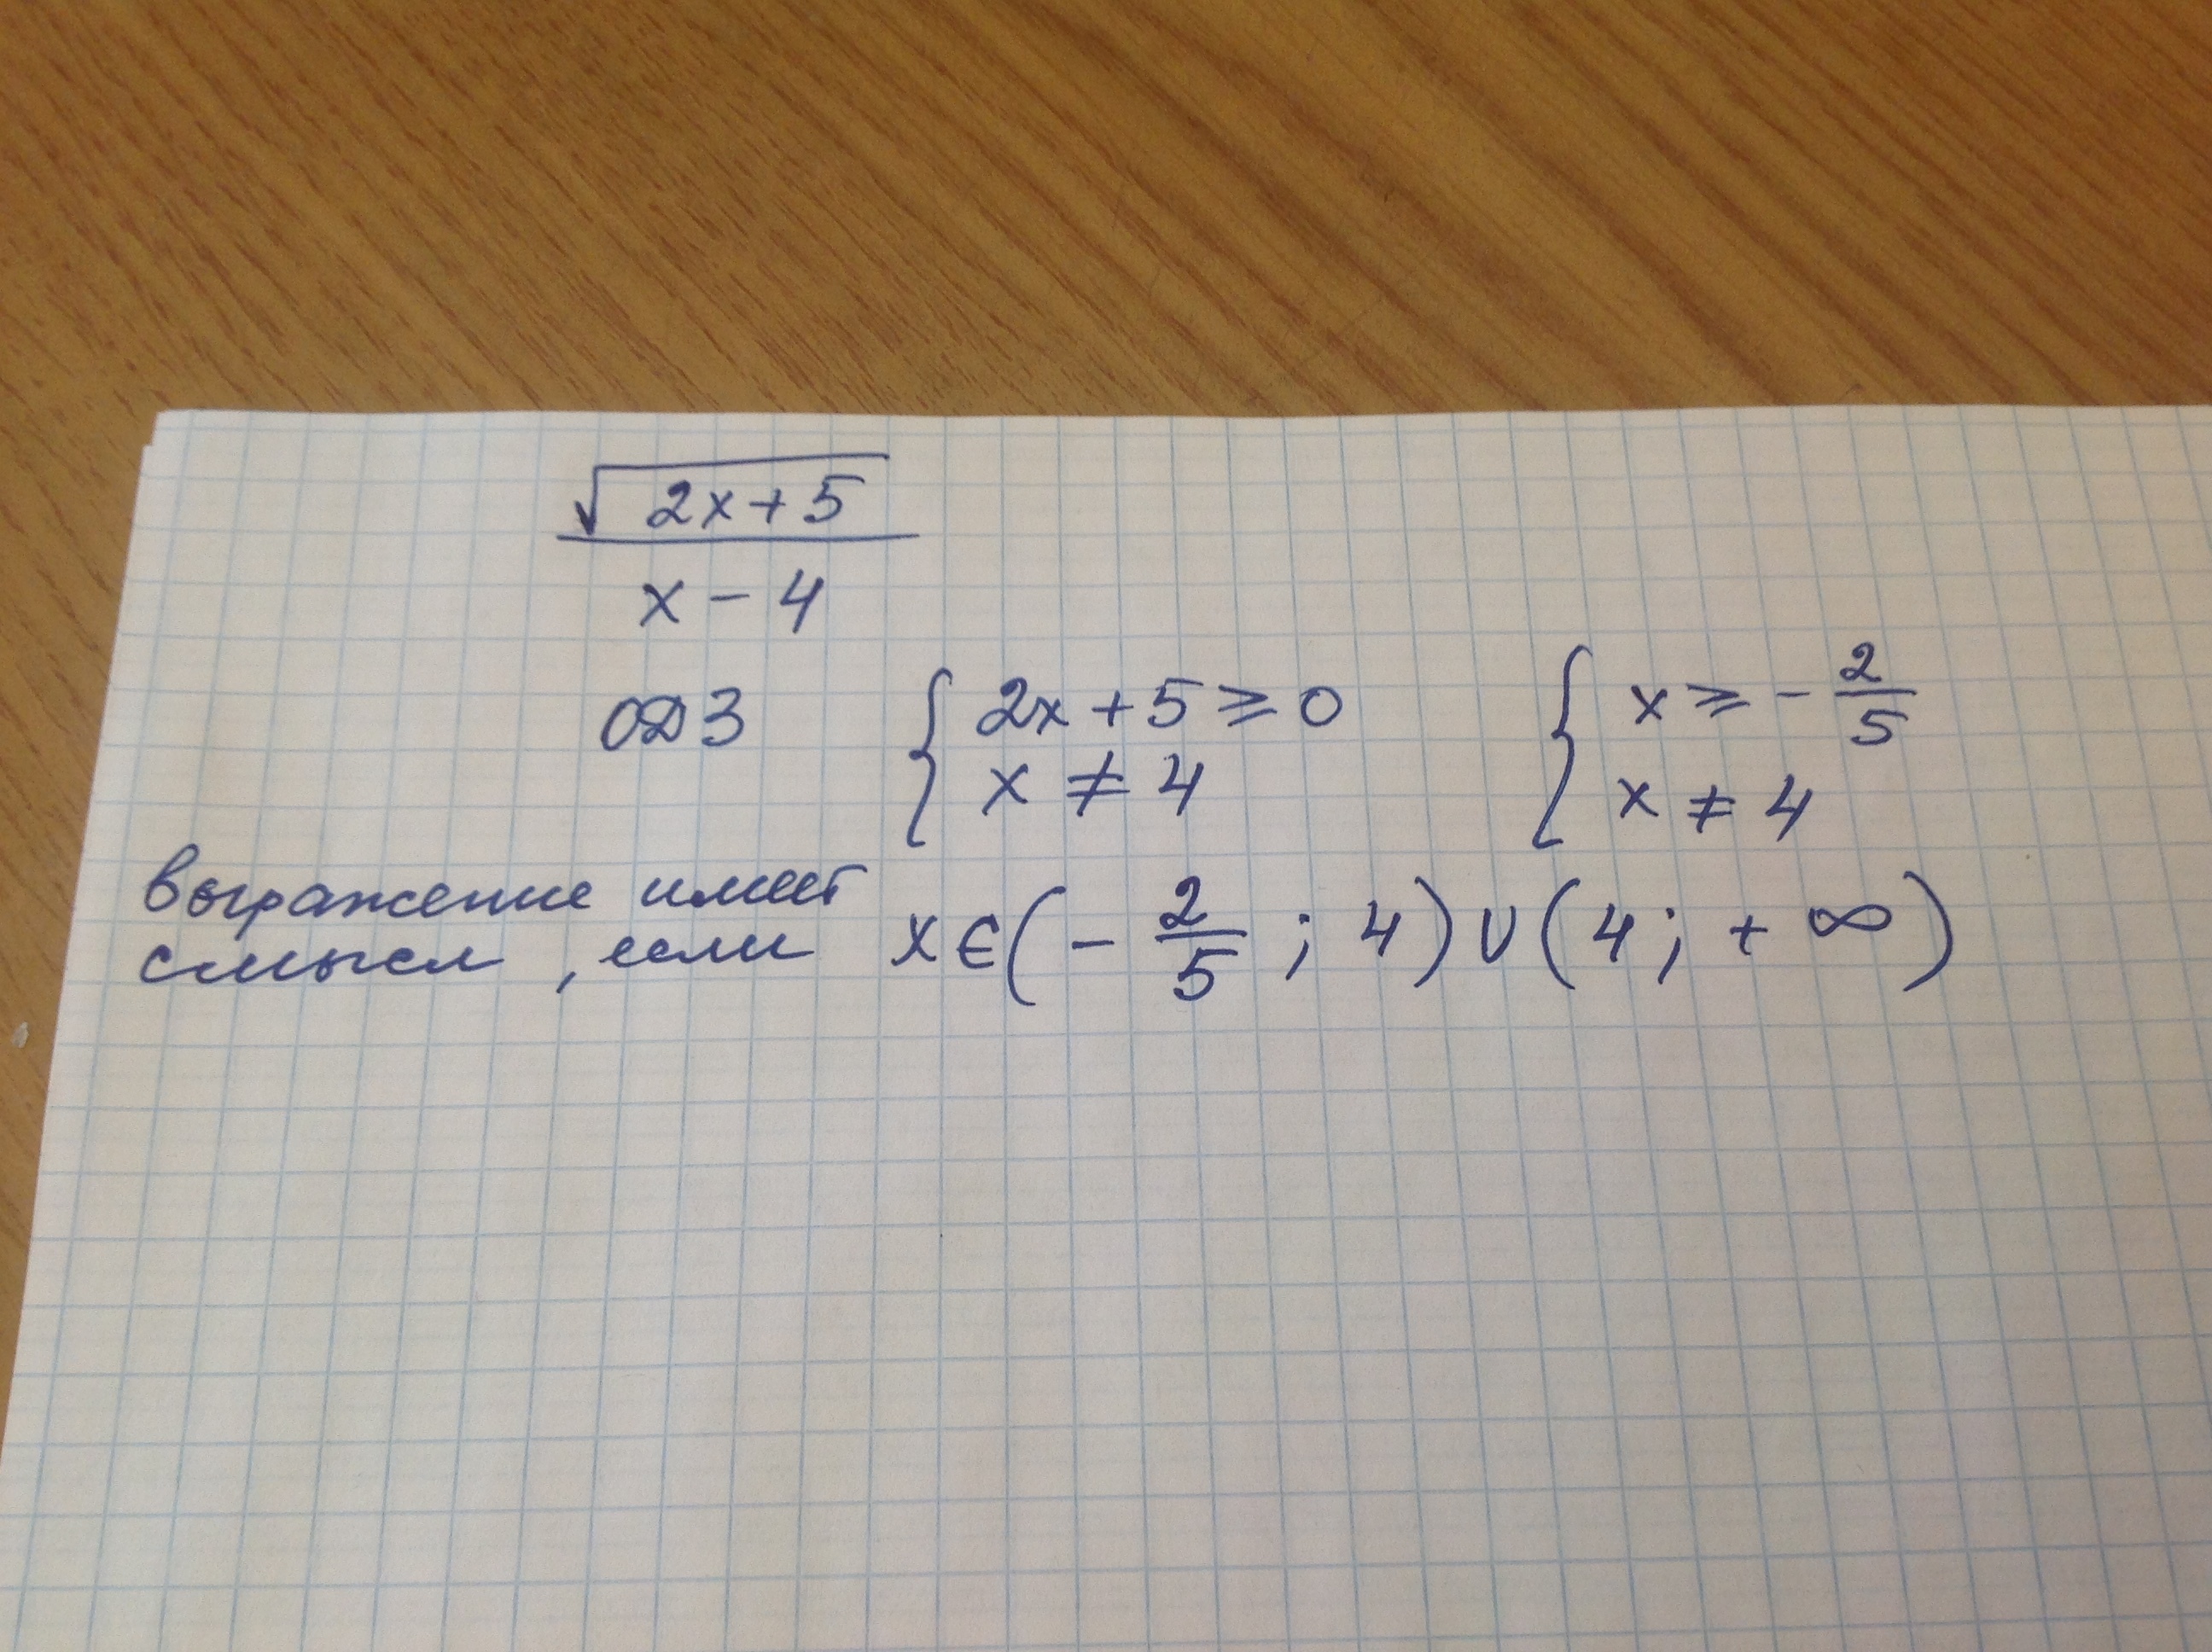 √(2x+5)
x - 4
ОДЗ { 2x + 5 ⩾ 0 { x ⩾ - 2/5
x ≠ 4 x ≠ 4
выражение имеет
смысл, если x ∈ (- 2/5 ; 4) ∪ (4 ; + ∞)